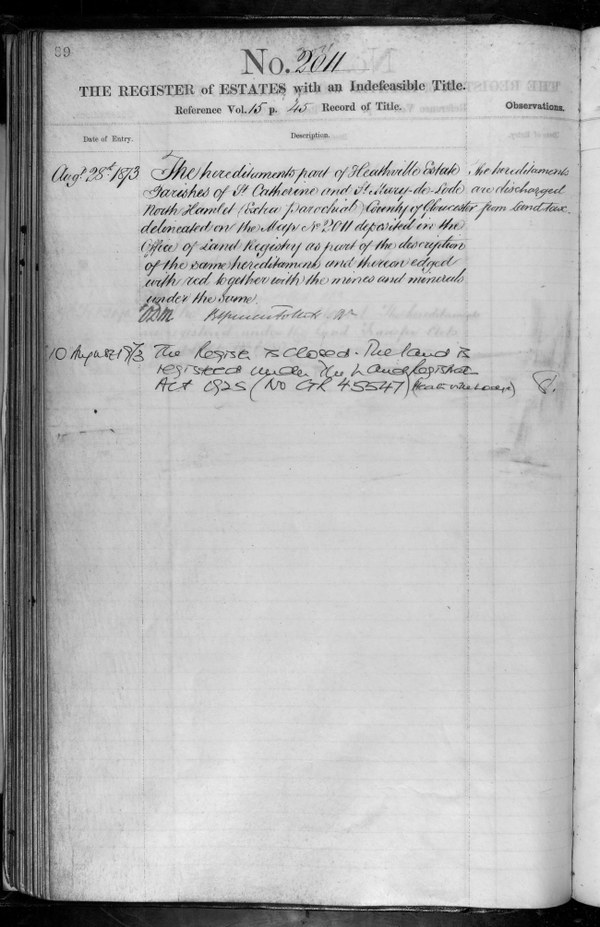 89
No. 2011
THE REGISTER of ESTATES with an Indefeasible Title.
Reference Vol. 15 p. 45 Record of Title.
Observations.
Date of Entry.
Description.
Augt 28th 1873
The hereditaments part of Heathville Estate
Parishes of St Catherine and St Mary-de-Lode
North Hamlet (Extra Parochial) County of Gloucester
delineated on the Map No 2011 deposited in the
Office of Land Registry as part of the description
of the same hereditaments and thereon edged
with red together with the mines and minerals
under the same.
The hereditaments
are discharged
from Land tax.
10 August 1973
The Register is closed. The land is
registered under the Land Registration
Act 1925 (No GR 45547)